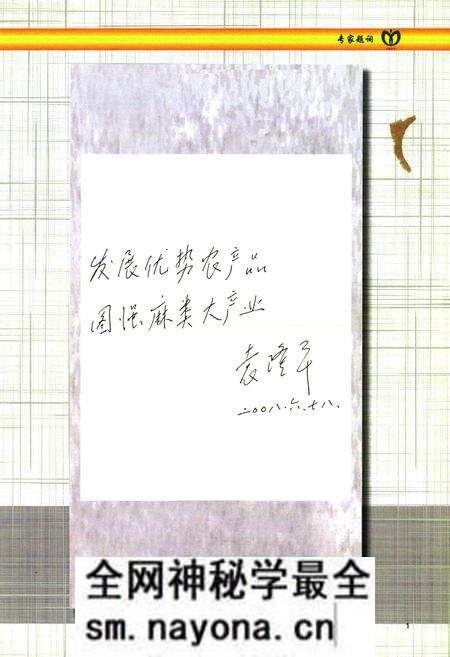 专家题词
发展优势农产品
图强麻类大产业
袁隆平
二00八.六.十八.
全网神秘学最全
sm.nayona.cn
1